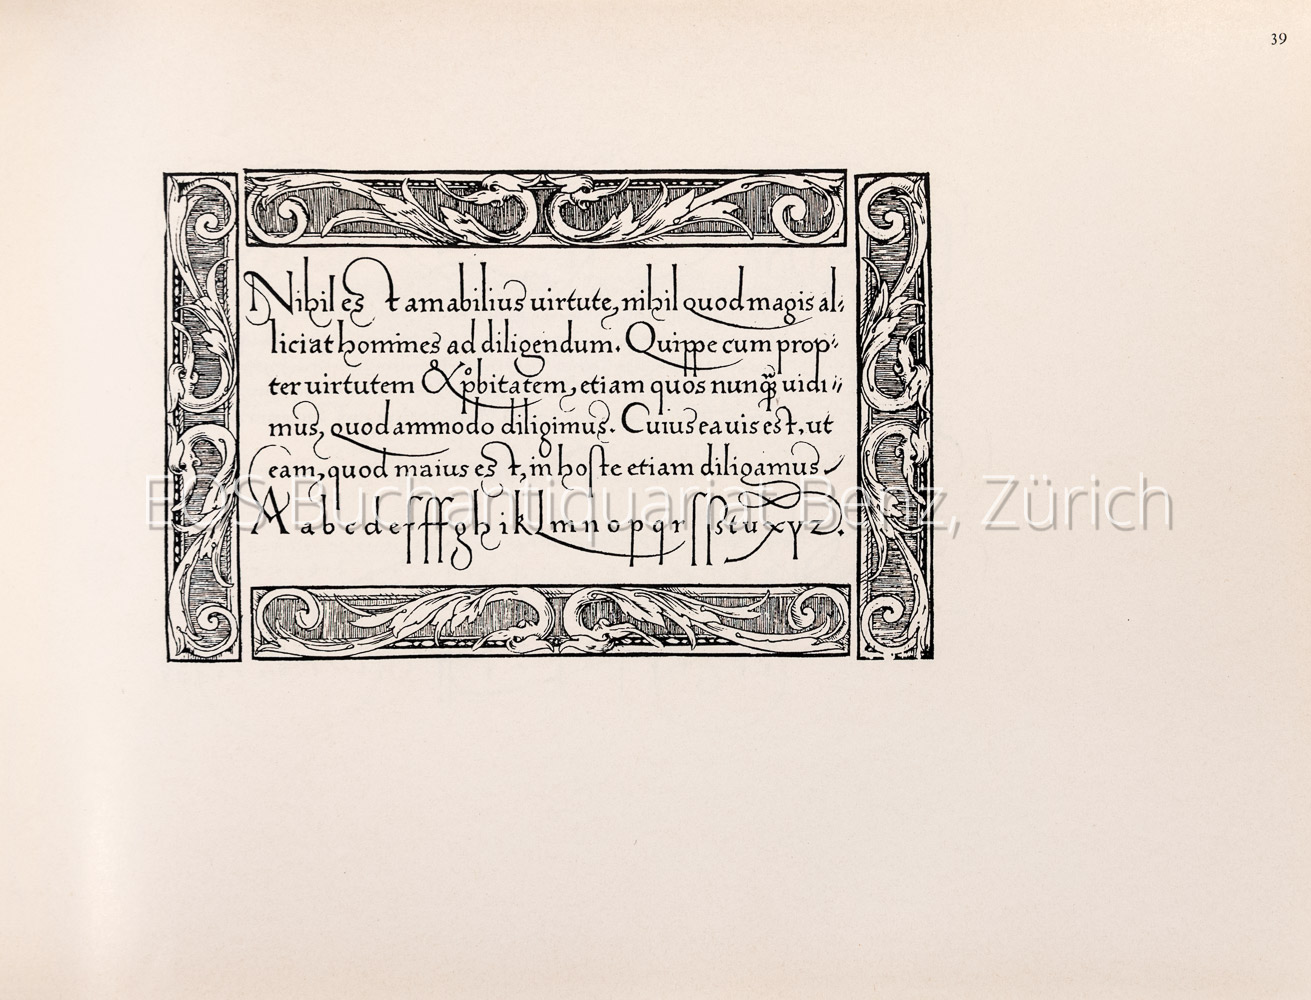 39
Nihil est amabilius uirtute, nihil quod magis al⸗
liciat homines ad diligendum. Quippe cum prop⸗
ter uirtutem & p̊bitatem, etiam quos nunq̃ uidi⸗
mus, quodammodo diligimus. Cuius ea uis est, ut
eam, quod maius est, in hoſte etiam diligamus
EOS Buchantiquariat Benz, Zürich
A a b c d e f ff g h i k l m n o p q r ſ ſſ s t u x y z.